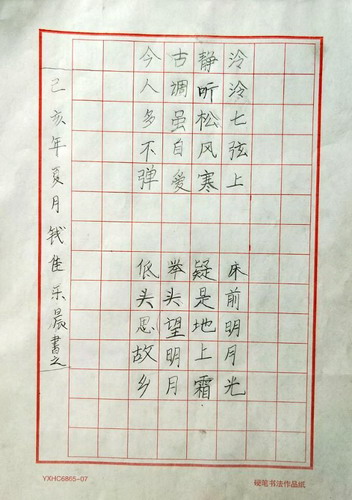 泠泠七弦上
静听松风寒
古调虽自爱
今人多不弹
床前明月光
疑是地上霜
举头望明月
低头思故乡
己亥年夏月钱佳乐晨書之
YXHC6865-07
硬笔书法作品纸